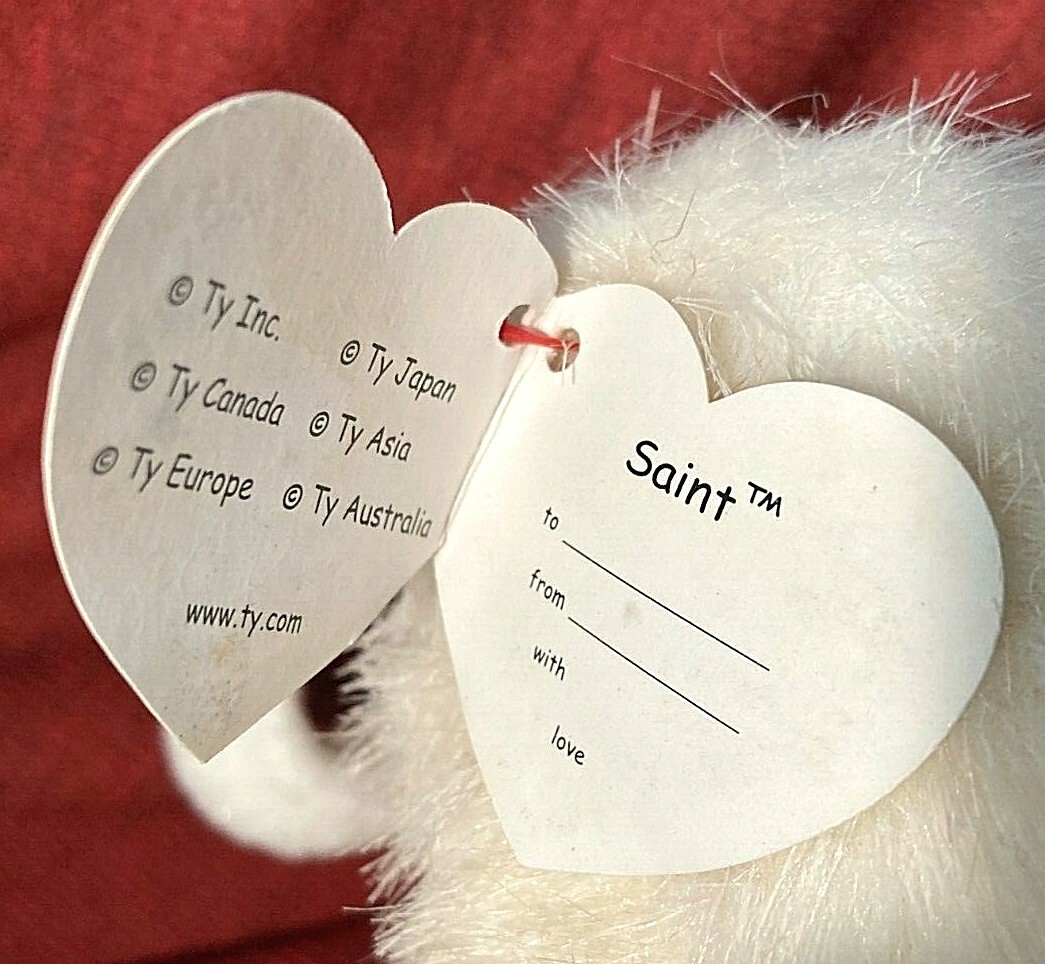 © Ty Inc.
© Ty Japan
© Ty Canada
© Ty Asia
© Ty Europe
© Ty Australia
www.ty.com
Saint™
to
from
with
love